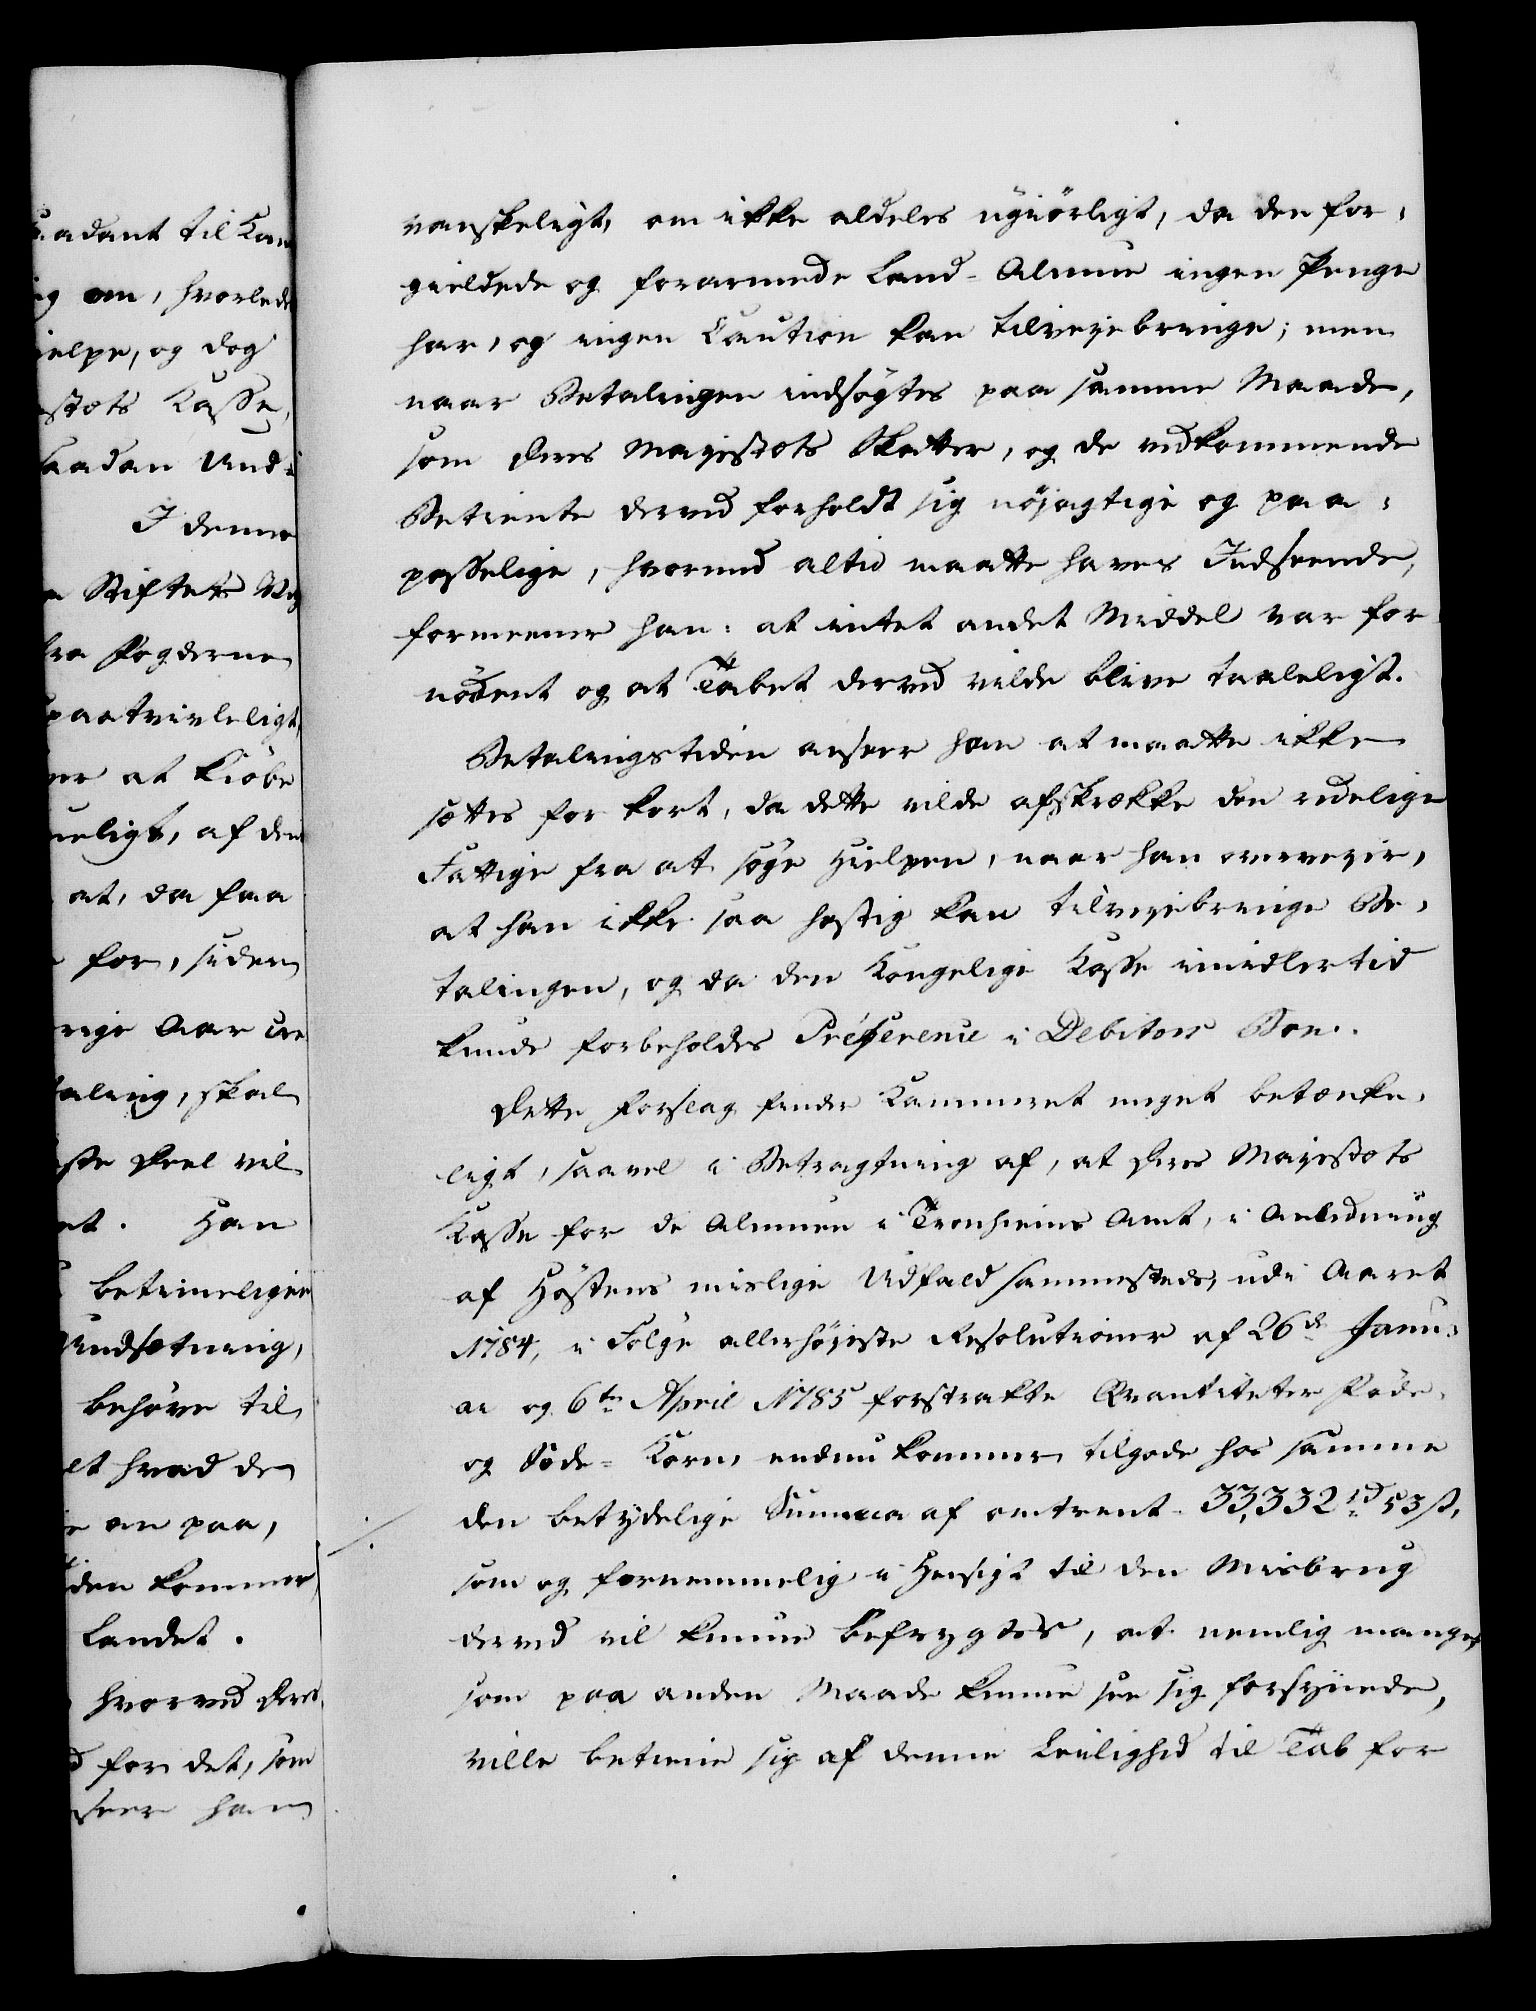 aadant til Kam
ig om, hvorlede
ielpe, og dog
estæts Kasse,
saadan Und-
I denne
Stiftets
fra Fogderne
paatvivleligt,
at kiöbe
meligt, af den
at, da faa
for, siden
rige Aar
taling, skal
ste Deel vil
et. Han
betimeligen
Undsætning,
behöve til
et hvad den
an paa,
den kommer,
Landet.
hvorved
for det, som
seer han
vanskeligt, om ikke aldeles ugiörligt, da den for-
gieldede og forarmede Land-Almue ingen Penge
har, og ingen Caution kan tilvejebringe; men
naar Betalingen indsögtes paa samme Maade,
som Deres Majestæts Skatter, og de vedkommende
Betiente derved forholdt sig nöjagtige og paa-
passelige, hvormed altid maatte haves Indseende,
formeener han: at intet andet Middel var for
nödent og at Tabet derved vilde blive taaleligt.
Betalingstiden anseer han at maatte ikke
sættes for kort, da dette vilde afskrække den redelige
Fattige fra at söge Hielpen, naar han overvejer,
at han ikke saa hastig kan tilvejebringe Be-
talingen, og da den Kongelige Kasse imidlertid
kunde forbeholdes Præference i Debitors Boe.
Dette Forslag finder Kammeret meget betænke-
ligt, saavel i Betragtning af, at Deres Majestæts
Kasse for de Almuen i Tronhiems Amt, i Anledning
af Höstens mislige Udfald sammesteds, udi Aaret
1784, i Folge allerhöjeste Resolutioner af 26de Janu-
ar og 6te April 1785 forstrakte Qvantiteter Föde-
og Sæde-Korn, endnu kommer tilgode hos samme
den betydelige Summa af omtrent 33,332 rd 53 s,
som og fornemmelig i Hensigt til den Misbrug
derved vil kunne befrygtes, at nemlig mange,
som paa anden Maade kunne see sig forsynede,
ville betiene sig af denne Leilighed til Tab for